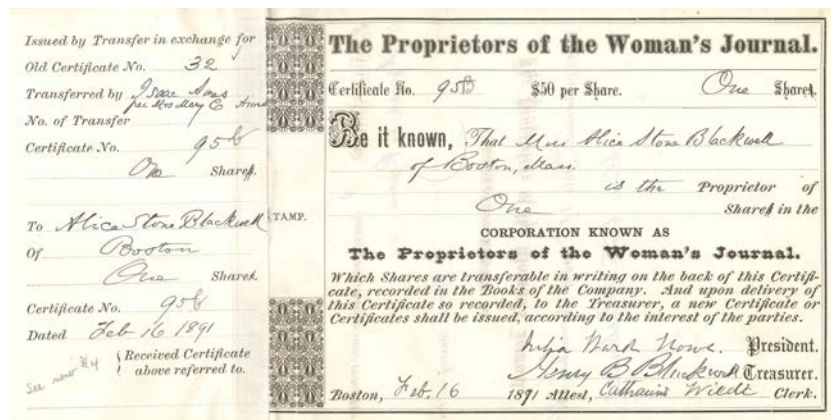 Issued by Transfer in exchange for
Old Certificate No. 32
Transferred by Isaac Ames
per Mrs Mary C Ames
No. of Transfer
Certificate No. 95b
One Share.
To Alice Stone Blackwell
Of Boston
One Share.
Certificate No. 95b
Dated Feb 16 1891
Received Certificate
above referred to.
See new #4
TAMP.
The Proprietors of the Woman's Journal.
Certificate No. 95b $50 per Share. One Share.
Be it known, That Miss Alice Stone Blackwell
of Boston, Mass.
is the Proprietor of
One Share in the
CORPORATION KNOWN AS
The Proprietors of the Woman's Journal.
Which Shares are transferable in writing on the back of this Certifi-
cate, recorded in the Books of the Company. And upon delivery of
this Certificate so recorded, to the Treasurer, a new Certificate or
Certificates shall be issued, according to the interest of the parties.
Julia Ward Howe. President.
Henry B Blackwell Treasurer.
Boston, Feb. 16 1891 Attest, Catharine Wilde Clerk.